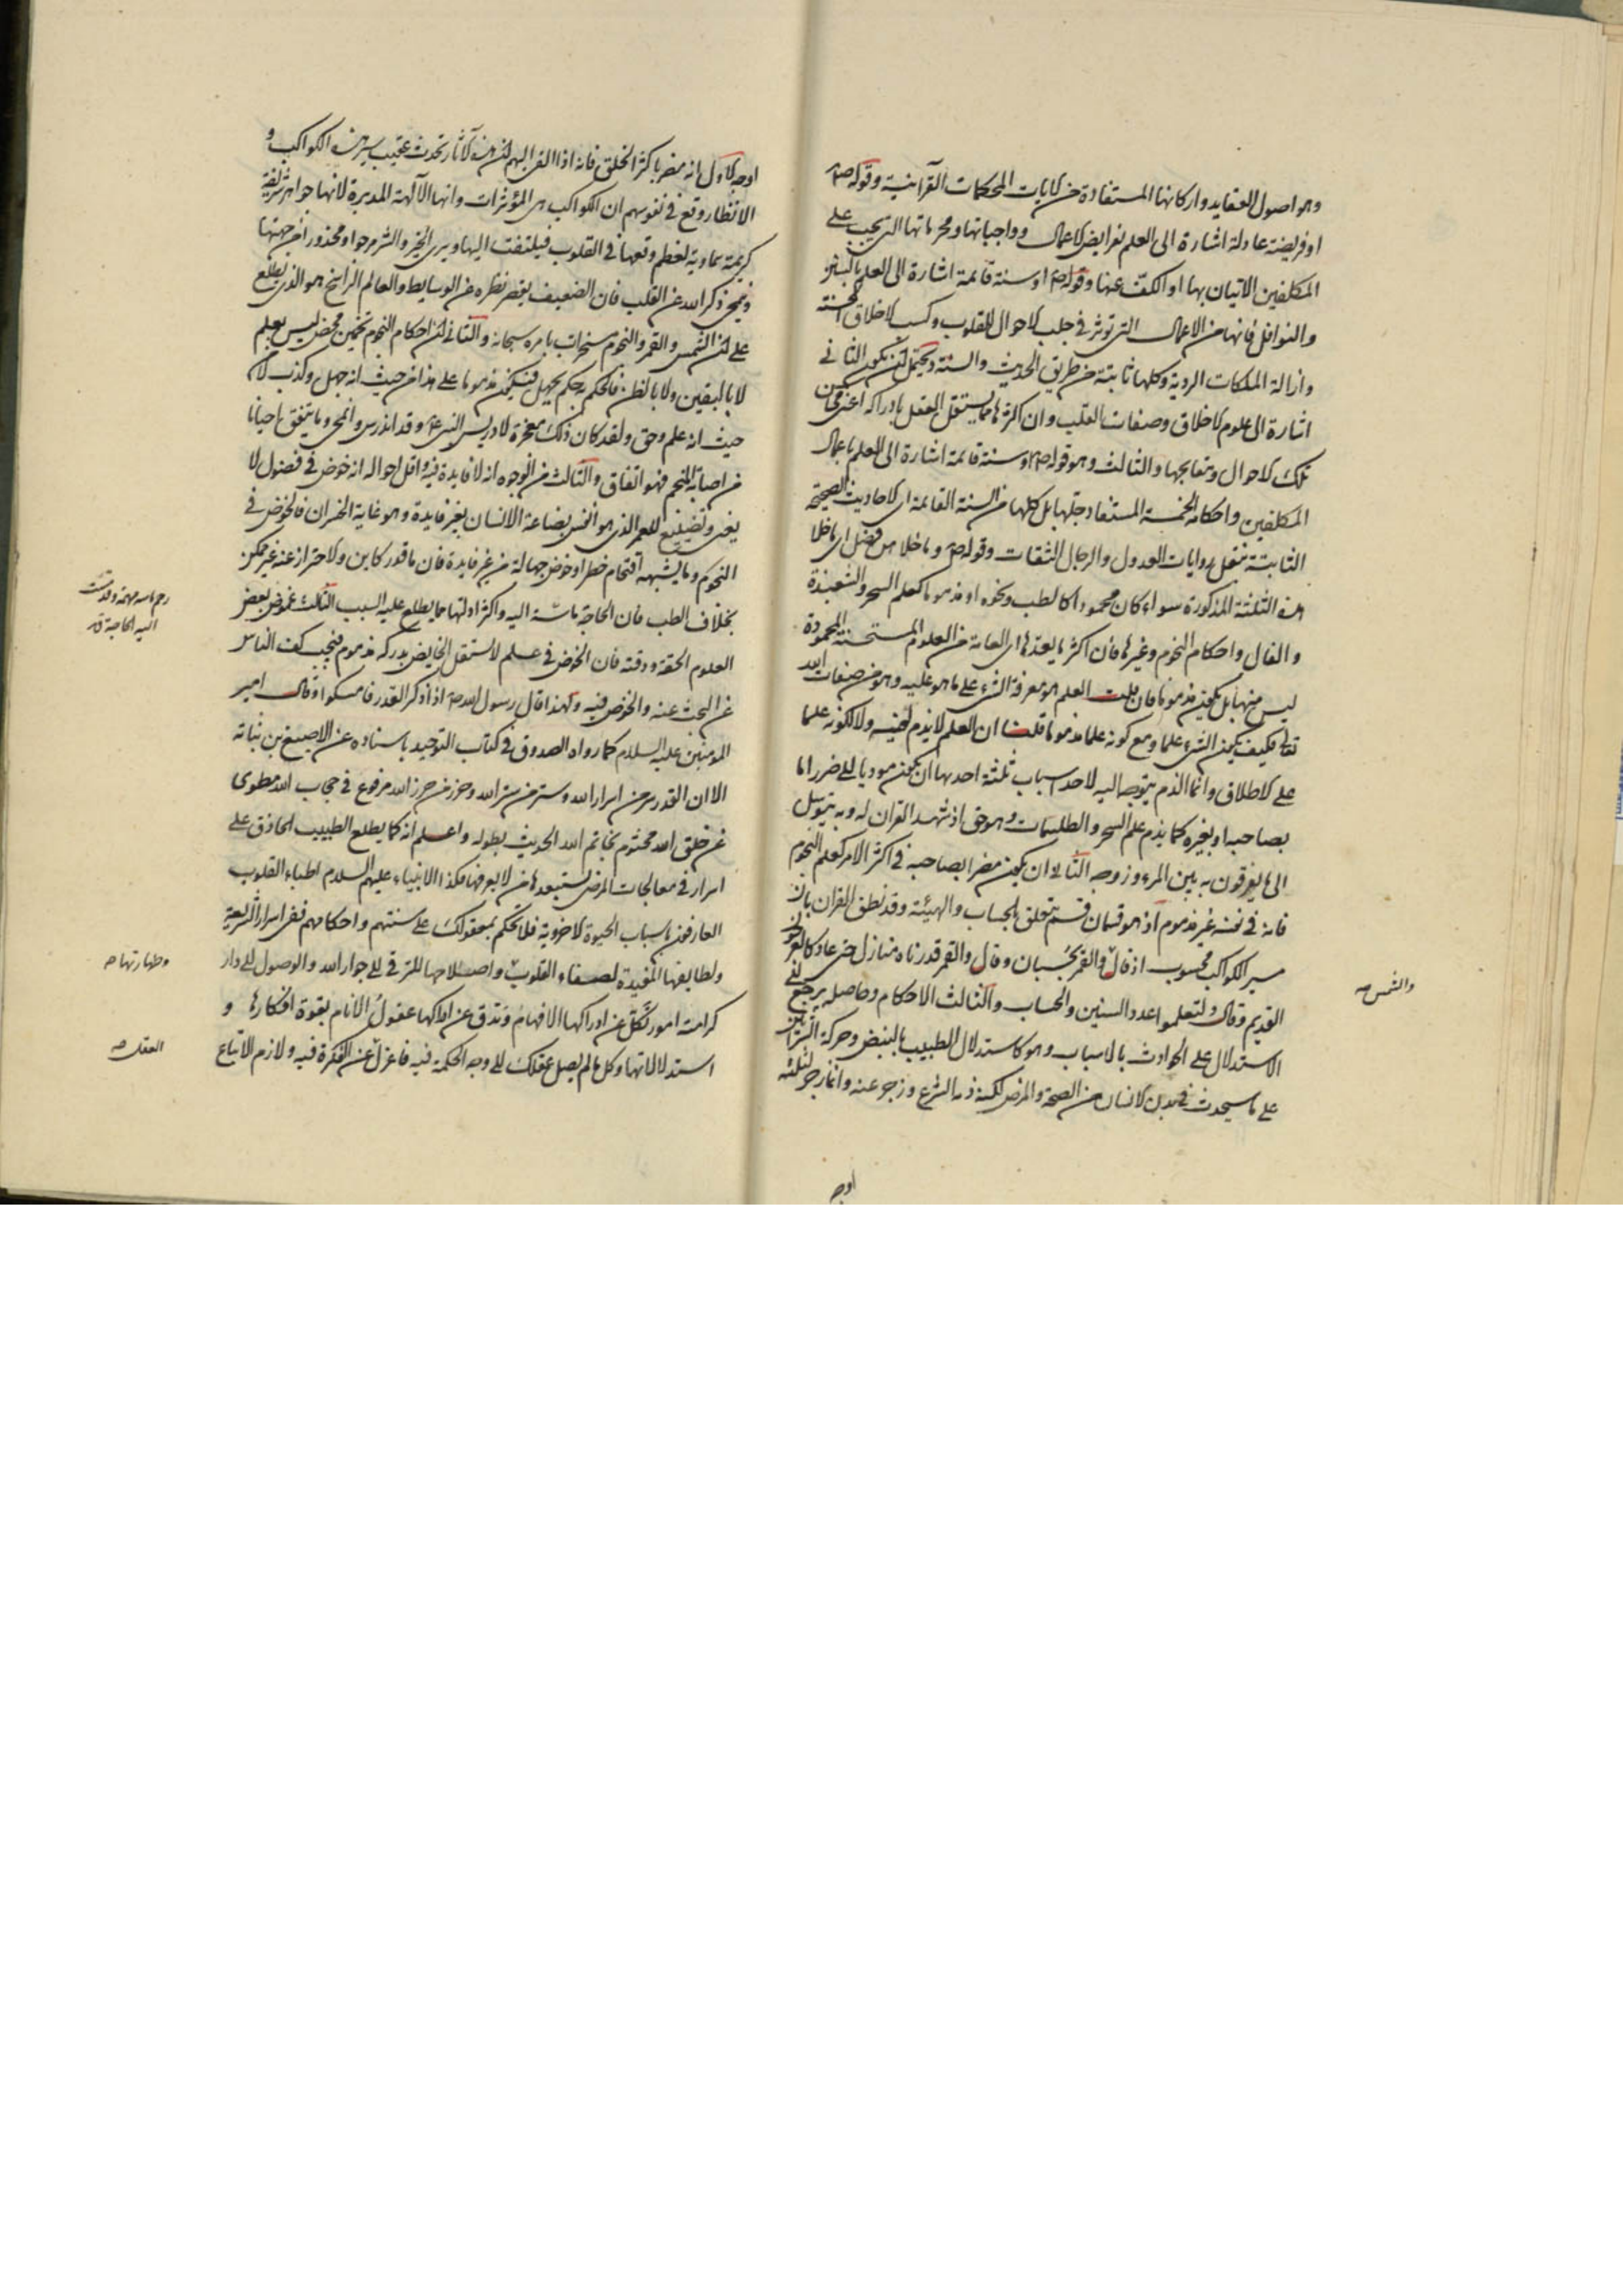 وهو اصول العقايد واركانها المستفادة من الايات المحكمات القرآنية وقوله ص
او فريضة عادلة اشارة الى العلم بفرايض الاعمال وواجباتها ومحرماتها التي يجب على
المكلفين الاتيان بها او الكف عنها وقوله ص او سنة قائمة اشارة الى العلم بالسنن
والنوافل فانها من الاعمال التي توثر في جلب الاحوال للقلوب وكسب الاخلاق الحسنة
وازالة الملكات الردية وكلها ثابتة من طريق الحديث والسنة ويحتمل ان يكون الثاني
اشارة الى علوم الاخلاق وصفات القلب وان اكثرها مما يستقل العقل بادراكه اعني محاسن
تلك الاحوال ومقابحها والثالث وهو قوله ص او سنة قائمة اشارة الى العلم باعمال
المكلفين واحكامه الخمسة المستفاد جلها بل كلها من السنة القائمة اى الاحاديث الصحيحة
الثابتة بنقل روايات العدول والرجال الثقات وقوله ص وما خلا من فضل اى ما خلا
هذه الثلثة المذكورة سواء كان محمودا كالطب ونحوه او مذموما كعلم السحر والشعبذة
والفال واحكام النجوم وغيرها فان اكثر ما يعدها اى العامة من العلوم المستحسنة المحمودة
ليس منها بل يكون مذموما فان قلت العلم هو معرفة الشيء على ما هو عليه وهو من صفات الله
تعالى فكيف يكون الشيء علما ومع كونه علما مذموما قلت ان العلم لا يذم لنفسه ولا لكونه علما
على الاطلاق وانما الذم يتوجه اليه لاحد اسباب ثلثة احدها ان يكون موديا الى ضرر اما
بصاحبه او بغيره كما يذم علم السحر والطلسمات وهو حق اذ شهد القران له وبه يتوسل
الى ما يفرقون به بين المرء وزوجه الثاني ان يكون مضرا بصاحبه في اكثر الامر كعلم النجوم
فانه في نفسه غير مذموم اذ هو قسمان قسم يتعلق بالحساب والهيئة وقد نطق القران بان
سير الكواكب محسوب اذ قال والقمر بحسبان وقال والقمر قدرناه منازل حتى عاد كالعرجون
والشمس صح
القديم وقال ولتعلموا عدد السنين والحساب والثالث الاحكام وحاصله يرجع الى
الاستدلال على الحوادث بالاسباب وهو كاستدلال الطبيب بالنبض وحركة الشرائين
على ما سيحدث في بدن الانسان من الصحة والمرض لكنه ذمه الشرع وزجر عنه وانما زجر لثلثة
اوجه
اوجه الاول انه مضر باكثر الخلق فانه اذا القى اليهم ان هذه الآثار تحدث عقيب سير هذه الكواكب و
الانظار وقع في نفوسهم ان الكواكب هى المؤثرات وانها الآلهة المدبرة لانها جواهر شريفة
كريمة سماوية لعظم وقعها في القلوب فيلتفت اليها ويرى الخير والشر مرجوا ومحذورا من جهتها
ويمحى ذكر الله عن القلب فان الضعيف يقصر نظره عن الوسايط والعالم الراسخ هو الذي يطلع
على ان الشمس والقمر والنجوم مسخرات بامره سبحانه والثاني ان احكام النجوم تخمين محض ليس يعلم
لا باليقين ولا بالظن فالحكم به حكم بجهل فيكون مذموما على هذا من حيث انه جهل وكذب لا من
حيث انه علم وحق ولقد كان ذلك معجزة لادريس النبي ع وقد اندرس وانمحى وما يتفق احيانا
من اصابة المنجم فهو اتفاق والثالث من الوجوه انه لا فايدة فيه واقل احواله انه خوض في فضول لا
يغنى وتضييع للعمر الذي هو انفس بضاعة الانسان بغير فايدة وهو غاية الخسران فالخوض في
النجوم وما يشبهه اقتحام خطر وخوض جهالة من غير فايدة فان ما قدر كاين والاحتراز عنه غير ممكن
بخلاف الطب فان الحاجة ماسة اليه واكثر ادلتها مما يطلع عليه السبب الثالث غموض بعض
العلوم الحقة ودقته فان الخوض في علم لا يستقل الخايض بدركه مذموم فيجب كف الناس
عن البحث عنه والخوض فيه ولهذا قال رسول الله ص اذا ذكر القدر فامسكوا وقال امير
المومنين عليه السلام كما رواه الصدوق في كتاب التوحيد باسناده عن الاصبغ بن نباتة
الا ان القدر سر من اسرار الله وستر من ستر الله وحرز من حرز الله مرفوع في حجاب الله مطوى
عن خلق الله مختوم بخاتم الله الحديث بطوله واعلم انه كما يطلع الطبيب الحاذق على
اسرار في معالجات المرضى يستبعدها من لا يعرفها فكذا الانبياء عليهم السلام اطباء القلوب
العارفون باسباب الحيوة الاخروية فلا تحكم بمعقولك على سنتهم واحكامهم ففى اسرار الشريعة
ولطايفها المفيدة لصفاء القلوب واصلاحها للترقى الى جوار الله والوصول الى دار
وطهارتها صح
كرامته امور تكل عن ادراكها الافهام وتدق عن دركها عقول الانام بقوة افكارها و
استدلالاتها وكل ما لم يصل عقلك الى وجه الحكمة فيه فاعزل عن الفكرة فيه ولازم الاتباع
العقل صح